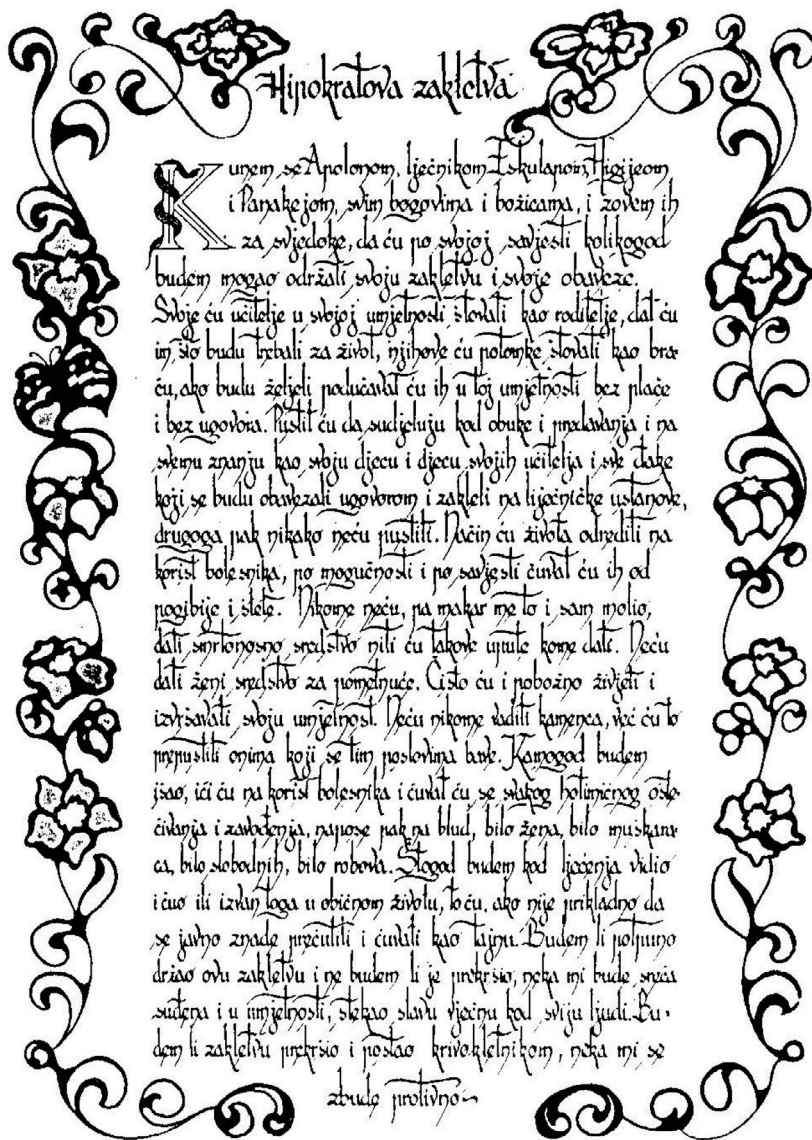 Hipokratova zakletva
Kunem se Apolonom, lječnikom Eskulapom, Higijeom
i Panakejom, svim bogovima i božicama, i zovem ih
za svjedoke, da ću po svojoj savjesti kolikogod
budem mogao održati svoju zakletvu i svoje obaveze.
Svoje ću učitelje u svojoj umjetnosti štovati kao roditelje, dat ću
im što budu trebali za život, njihove ću potomke štovati kao bra-
ću, ako budu željeli podučavat ću ih u toj umjetnosti bez plaće
i bez ugovora. Pustit ću da sudjeluju kod obuke i predavanja i na
svemu znanju kao svoju djecu i djecu svojih učitelja i sve đake
koji se budu obavezali ugovorom i zakleti na liječničke ustanove,
drugoga pak nikako neću pustiti. Način ću života odrediti na
korist bolesnika, po mogućnosti i po savjesti čuvat ću ih od
pogibije i štete. Nikome neću, pa makar me to i sam molio,
dati smrtonosno sredstvo niti ću takove upute kome dati. Neću
dati ženi sredstvo za pometnuće. Čisto ću i pobožno živjeti i
izvršavati svoju umjetnost. Neću nikome vaditi kamenca, već ću to
prepustiti onima koji se tim poslovima bave. Kamogod budem
išao, ići ću na korist bolesnika i čuvat ću se svakog hotimičnog ošte-
ćivanja i zavođenja, napose pak na blud, bilo žena, bilo muškara-
ca, bilo slobodnih, bilo robova. Štogod budem kod lječenja vidio
i čuo ili izvan toga u običnom životu, to ću, ako nije prikladno da
se javno znade prećutiti i čuvati kao tajnu. Budem li potpuno
držao ovu zakletvu i ne budem li je prekršio, neka mi bude sreća
suđena i u umjetnosti, stekao slavu vječnu kod sviju ljudi. Bu-
dem li zakletvu prekršio i postao krivokletnikom, neka mi se
zbude protivno